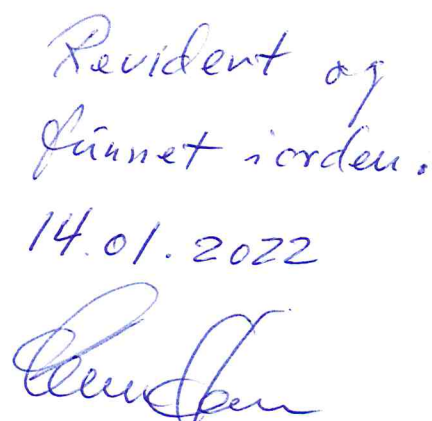 Revidert og
funnet iorden.
14.01.2022